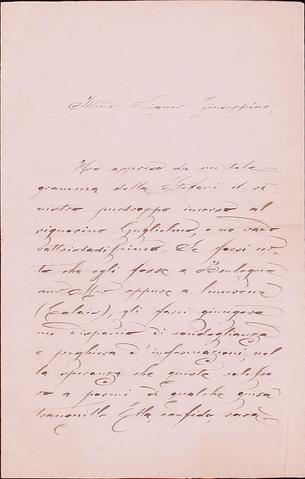 Illmo Signor Giuseppino,
Ho appreso da un tele
gramma della Stefani il si
nistro purtroppo incorso al
signorino Guglielmo e ne sono
rattristatissimo. Se fossi no
to che egli fosse a Boulogne
sur Mer oppure a
(Calais), gli farei giungere
un dispaccio di condoglianza
e preghiera d'informazioni, nel
la speranza che queste valesse
ro a pormi di qualche guisa
tranquillo. Ella, confido, sarà